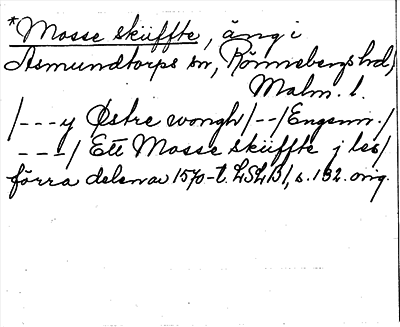 *Mosse skiiffte, äng i
Asmundtorps sn, Rönnebergs hd,
Malm. l.
/---y Østre wongh/--/Engenn./
---/ Ett Mosse skiiffte j les/
förra delen av 1570-t. LSLB1, s. 132. orig.